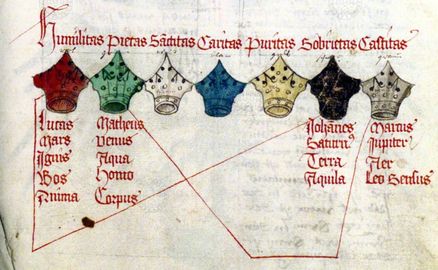 Humilitas Pietas Sātitas Caritas Puritas Sobrietas Castitas
Lucas
Mars
Ignis
Bos
Anima
Matheus
Venus
Aqua
Homo
Corpus
Johānes
Saturn9
Terra
Aquila
Marcus
Jupiter
Aer
Leo Sensus